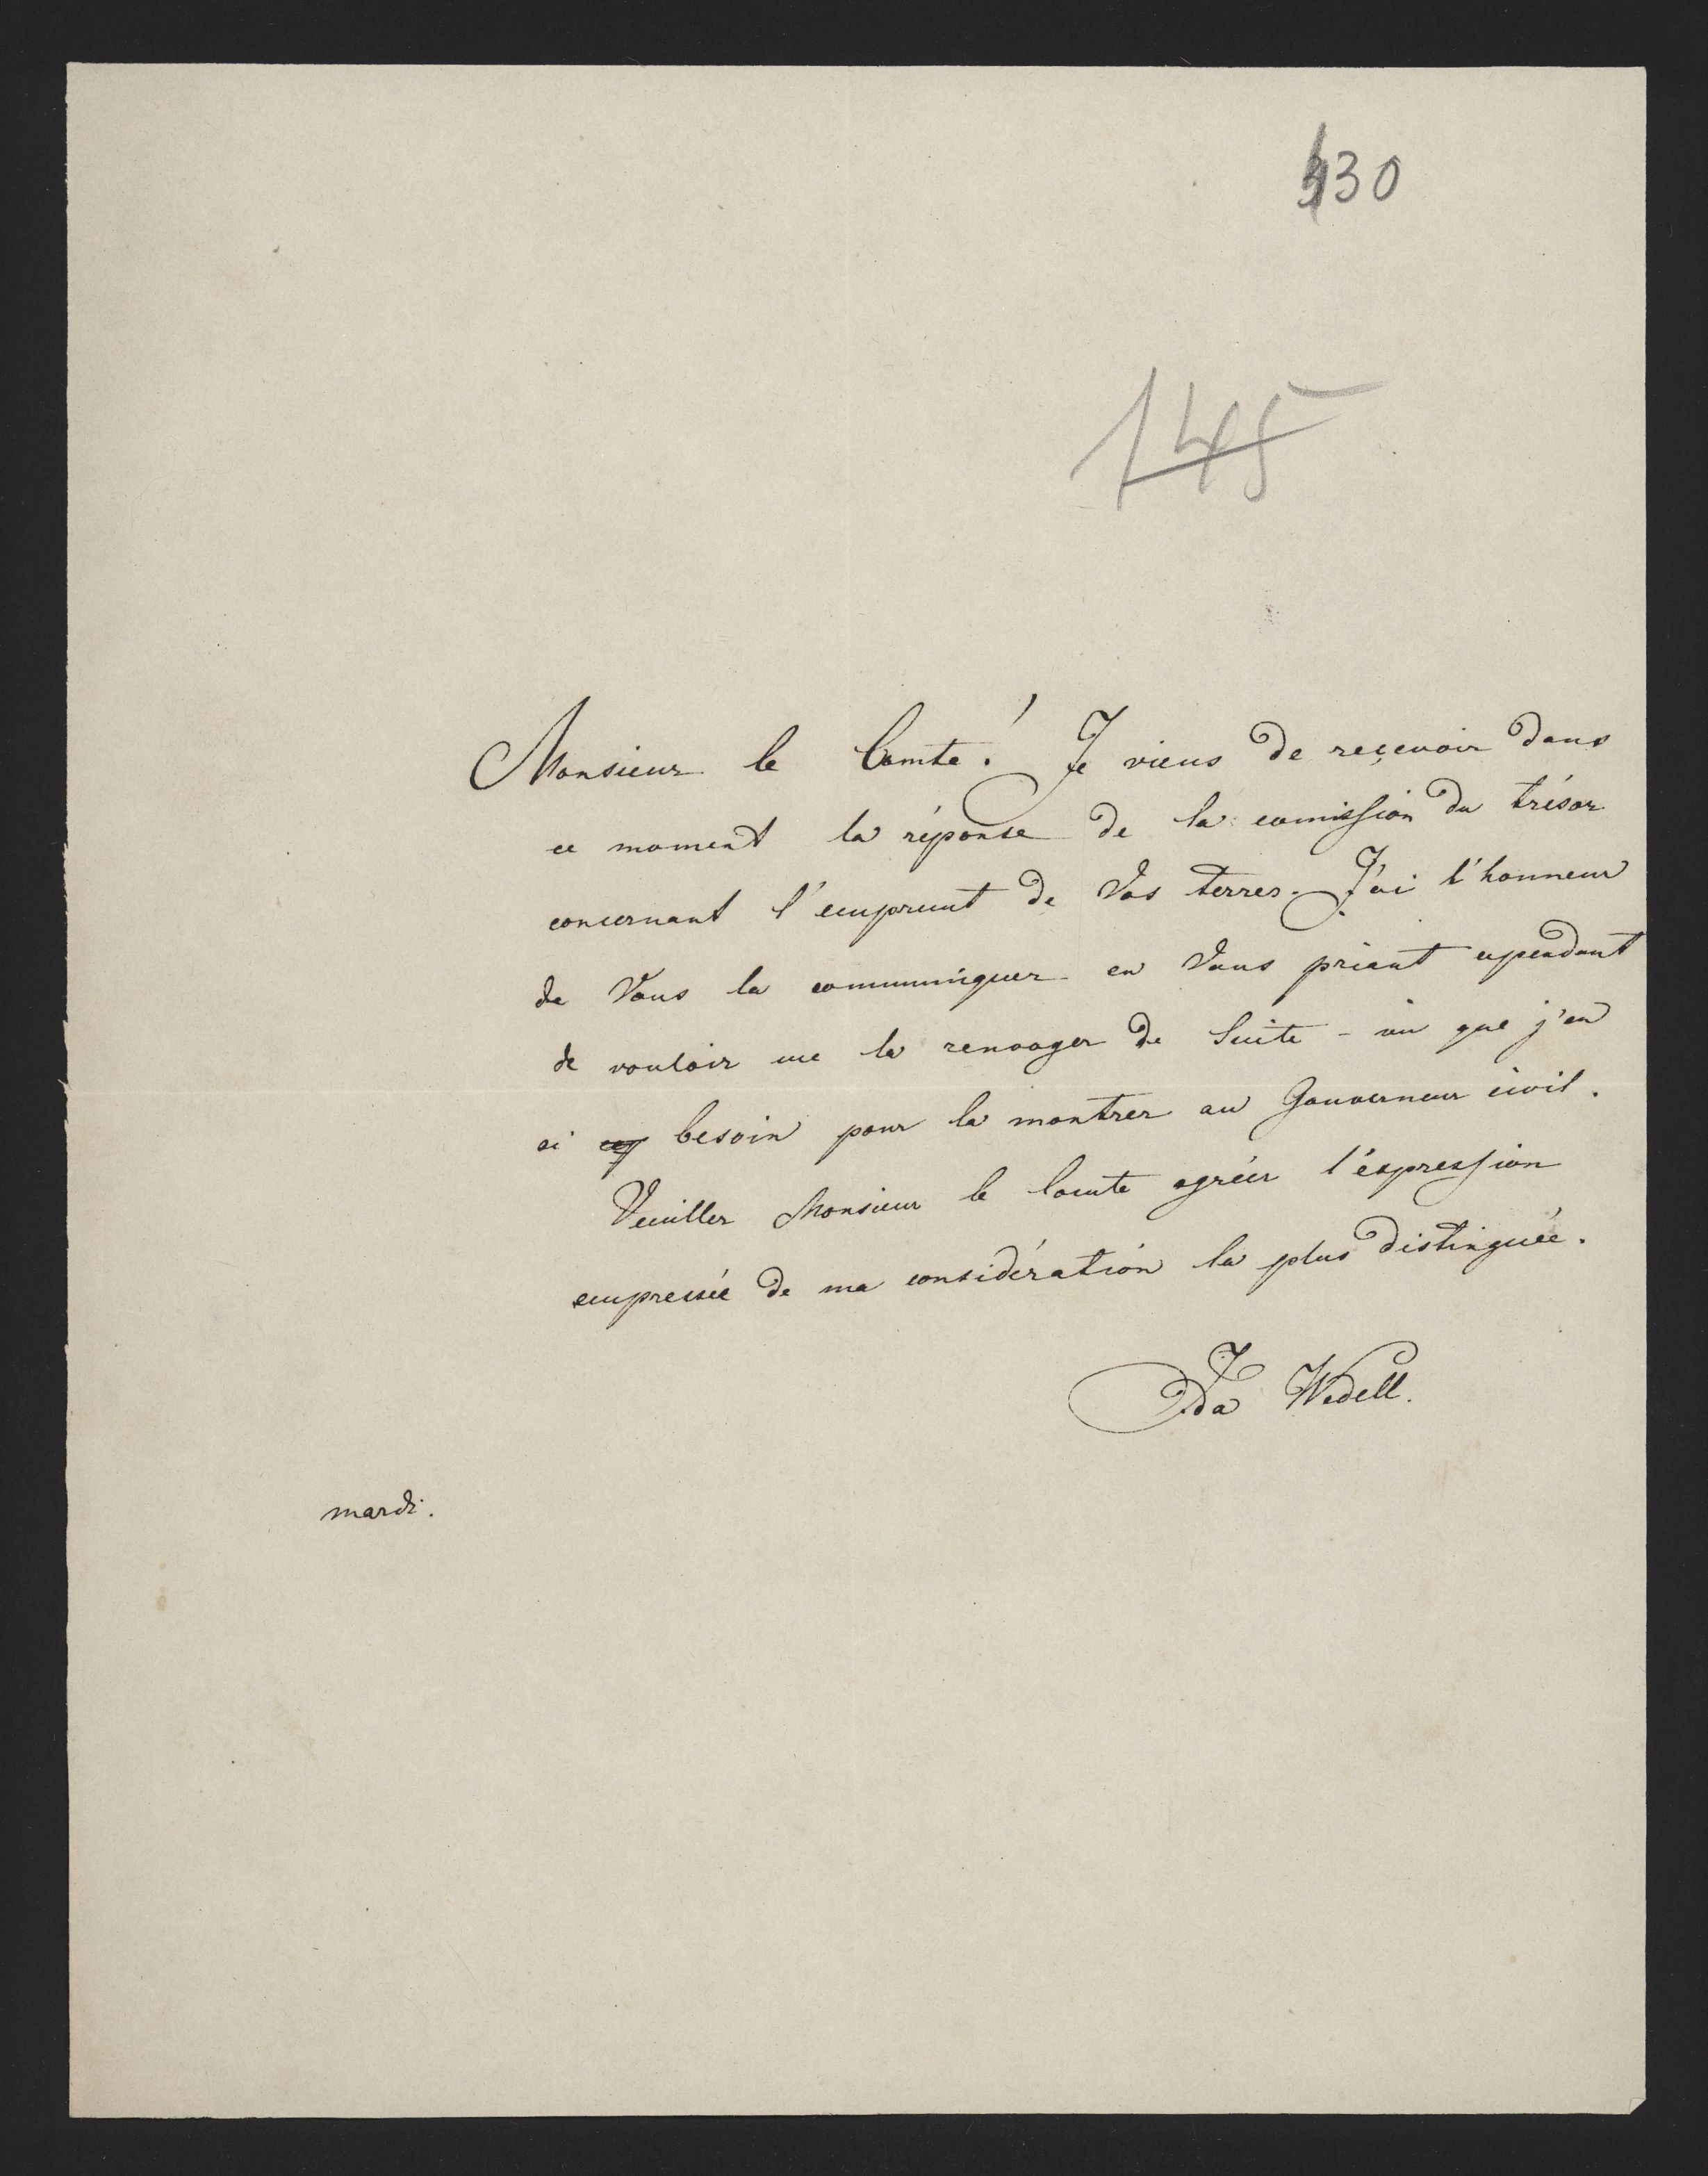 330
145
Monsieur le Comte! Je viens de reçevoir dans
ce moment la réponse de la comission du trésor
concernant l'emprunt de Vos terres. J'ai l'honneur
de Vous la communiquer en Vous priant cependant
de vouloir me la renvoyer de Suite - vu que j'en
ai besoin pour la montrer au Gouverneur civil.
Veuiller Monsieur le Comte agréer l'éxpression
empressée de ma considération la plus distinguée.
Ida Wedell.
mardi.